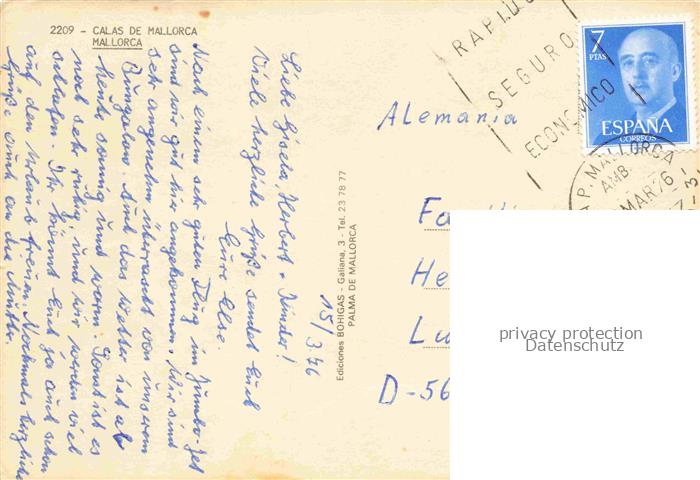 2209 - CALAS DE MALLORCA
MALLORCA
15/3.76
Liebe Gisela, Herbert + Kinder!
Viele herzliche Grüße sendet Euch
Eure Else.
Nach einem sehr guten Flug im Jumbo-Jet
sind wir gut hier angekommen. Wir sind
sehr angenehm überrascht von unserem
Bungalow. Auch das Wetter ist ab
heute sonnig und warm. Sonst ist es
noch sehr ruhig, und wir werden viel
schlafen. Ihr könnt Euch ja auch schon
auf den Urlaub freuen. Nochmals herzliche
Grüße auch an die Mutter.
Ediciones BOHIGAS - Galiana, 3 - Tel. 23 78 77
PALMA DE MALLORCA
RAPI
SEGURO
ECONOMICO
7
PTAS
ESPAÑA
CORREOS
P. MALLORCA
AMB
MAR 76
Alemania
Fa
He
Lu
D-56
privacy protection
Datenschutz